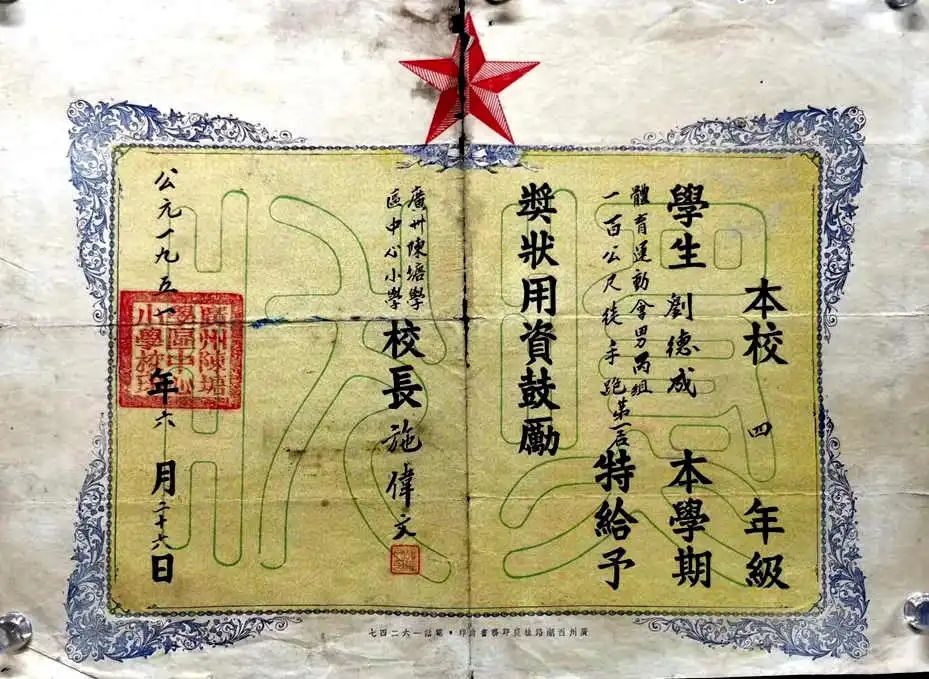 本校 四 年級
學生 劉德成 本學期
體育運動會男丙組
一百公尺徒手跑第一名
特給予
獎狀用資鼓勵
廣州陳塘學
區中心小學
校長 施偉文
公元一九五一年六月二十九日
廣州陳塘
學區中心
小學校印
獎狀
廣州西湖路 電話一六二四七